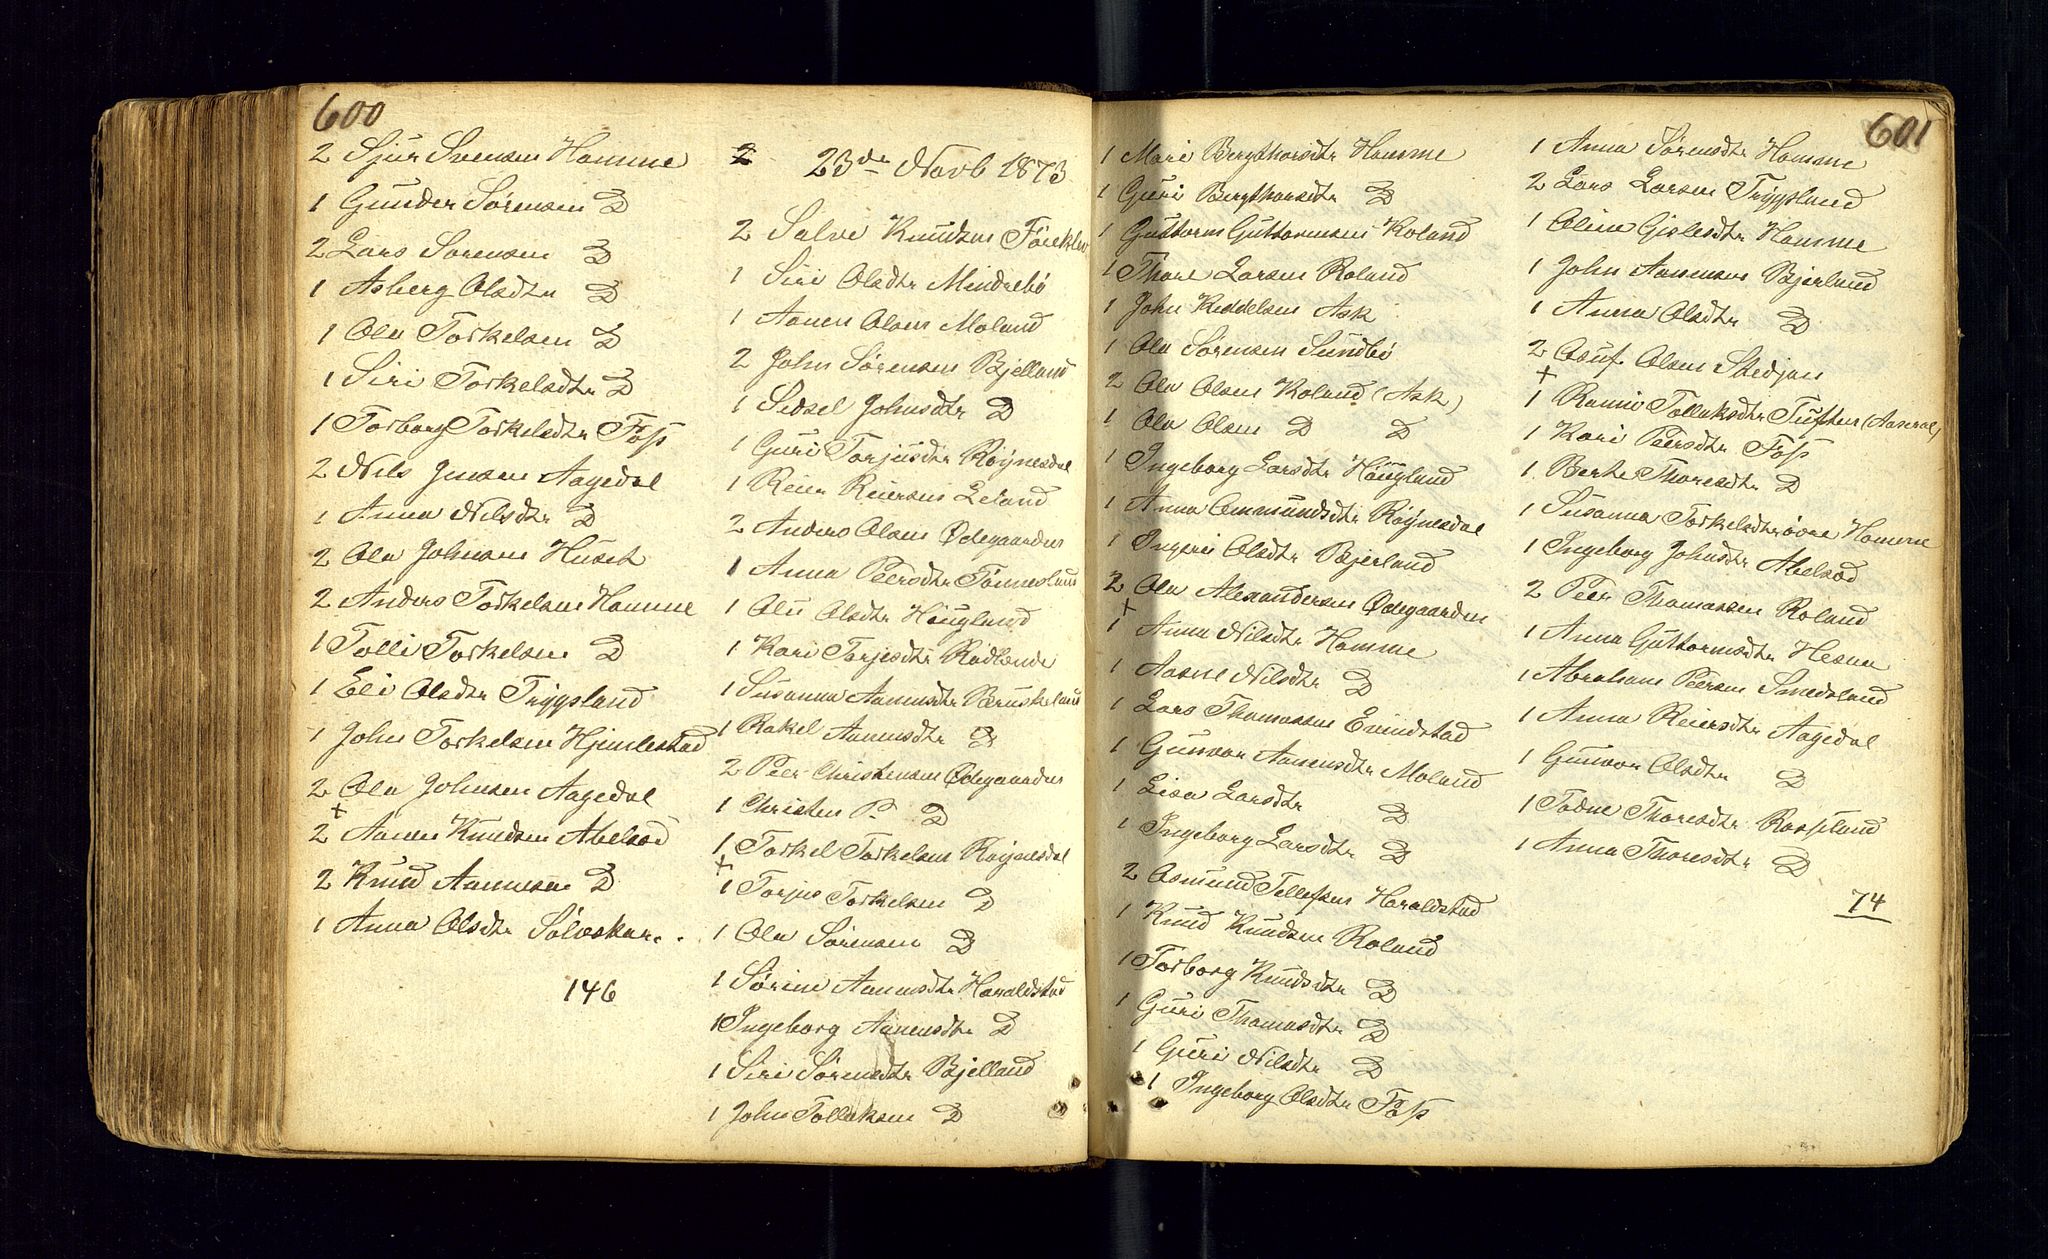 600
2 Sjur Svensen Homme
1 Gunder Sørensen D
2 Lars Sørensen D
1 Asberg Olsdtr D
1 Ola Torkelsen D
1 Siri Torkelsdtr D
1 Torborg Torkelsdtr Foss
2 Nils Jensen Aagedal
1 Anna Nilsdtr D
2 Ola Johnsen Huseh
2 Anders Torkelsen Homme
1 Tolli Torkelsen D
1 Eli Olsdtr Trygsland
1 John Torkelsen Hjemlestad
2 Ola Johnsen Aagedal
+
2 Aanen Knudsen Abelsød
2 Knud Aanensen D
1 Anna Olsdtr Sølvskar
146
2 23de Novb 1873
2 Salve Knudsen
1 Siri Olsdtr Mindrebö
1 Aanen Olsen Moland
2 John Sørensen Bjelland
1 Sidsel Johnsdtr D
1 Guri Torjusdtr Röynesdal
1 Reier Reiersen Leland
2 Anders Olsen Ødegaarden
1 Anna Peersdtr Tønnesland
1 Oli Olsdtr Høugland
1 Kari Torjesdtr Rødlende
1 Susanna Aanensdtr Bruskeland
1 Rakel Aanensdtr D
2 Peer Christensen Ødegaarden
1 Christen P. D
1 Torkel Torkelsen Röynesdal
+
1 Torjus Torkelsen D
1 Ola Sørensen D
1 Sørine Aanensdtr Haraldstad
1 Ingeborg Aanensdtr D
1 Siri Sørensdtr Bjelland
1 John Tollaksen D
601
1 Mari Bergthorsdtr Homme
1 Guri Bergthorsdtr D
1 Guttorm Guttormsen Roland
1 Thore Larsen Roland
1 John Keddelsen Ask
1 Ola Sørensen Sundbö
2 Ola Olsen Roland (Ask)
1 Ola Olsen D D
1 Ingeborg Larsdtr Höugland
1 Anna Ommundsdtr Röynesdal
1 Ingeri Olsdtr Bjerland
2 Ola Alexandersen Ødegaarden
+
1 Anna Nilsdtr Homme
1 Aasne Nilsdtr D
1 Lars Thomassen Evindstad
1 Gunvor Aanensdtr Moland
1 Lisa Larsdtr D
1 Ingeborg Larsdtr D
2 Osmund Tellefsen Haraldstad
1 Knud Knudsen Roland
1 Torborg Knudsdtr D
1 Guri Thomasdtr D
1 Guri Nilsdtr D
1 Ingeborg Olsdtr Foss
1 Anna Sørensdtr Homme
2 Lars Larsen Trygsland
1 Oline Gislesdtr Homme
1 John Aanensen Bjerland
1 Anna Olsdtr D
2 Osuf Olsen Skedjan
+
1 Rannei Tollaksdtr Tuften (Aaseral)
1 Kari Peersdtr Foss
1 Berte Thoresdtr D
1 Susanna Torkelsdtr øvre Homme
1 Ingeborg Johnsdtr Abelsød
2 Peer Thomassen Roland
1 Anna Guttormsdtr Hesaa
1 Abraham Peersen Smedsland
1 Anna Reiersdtr Aagedal
1 Gunvor Olsdtr D
1 Todne Thoresdtr Rossland
1 Anna Thoresdtr D
74